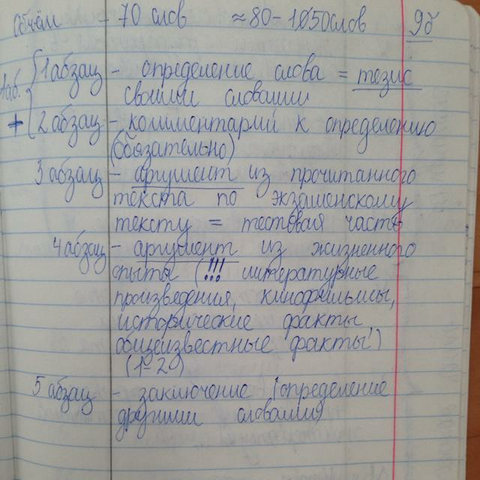 Объём – 70 слов ≈ 80 – 1050 слов 9б
1 абзац – определение слова = тезис
своими словами
+ 2 абзац – комментарий к определению
(обязательно)
3 абзац – аргумент из прочитанного
текста по экзаменскому
тексту = тестовая часть
4 абзац – аргумент из жизненного
опыта (!!! литературные
произведения, кинофильмы,
исторические факты,
общеизвестные факты)
(1-2)
5 абзац – заключение (определение
другими словами)